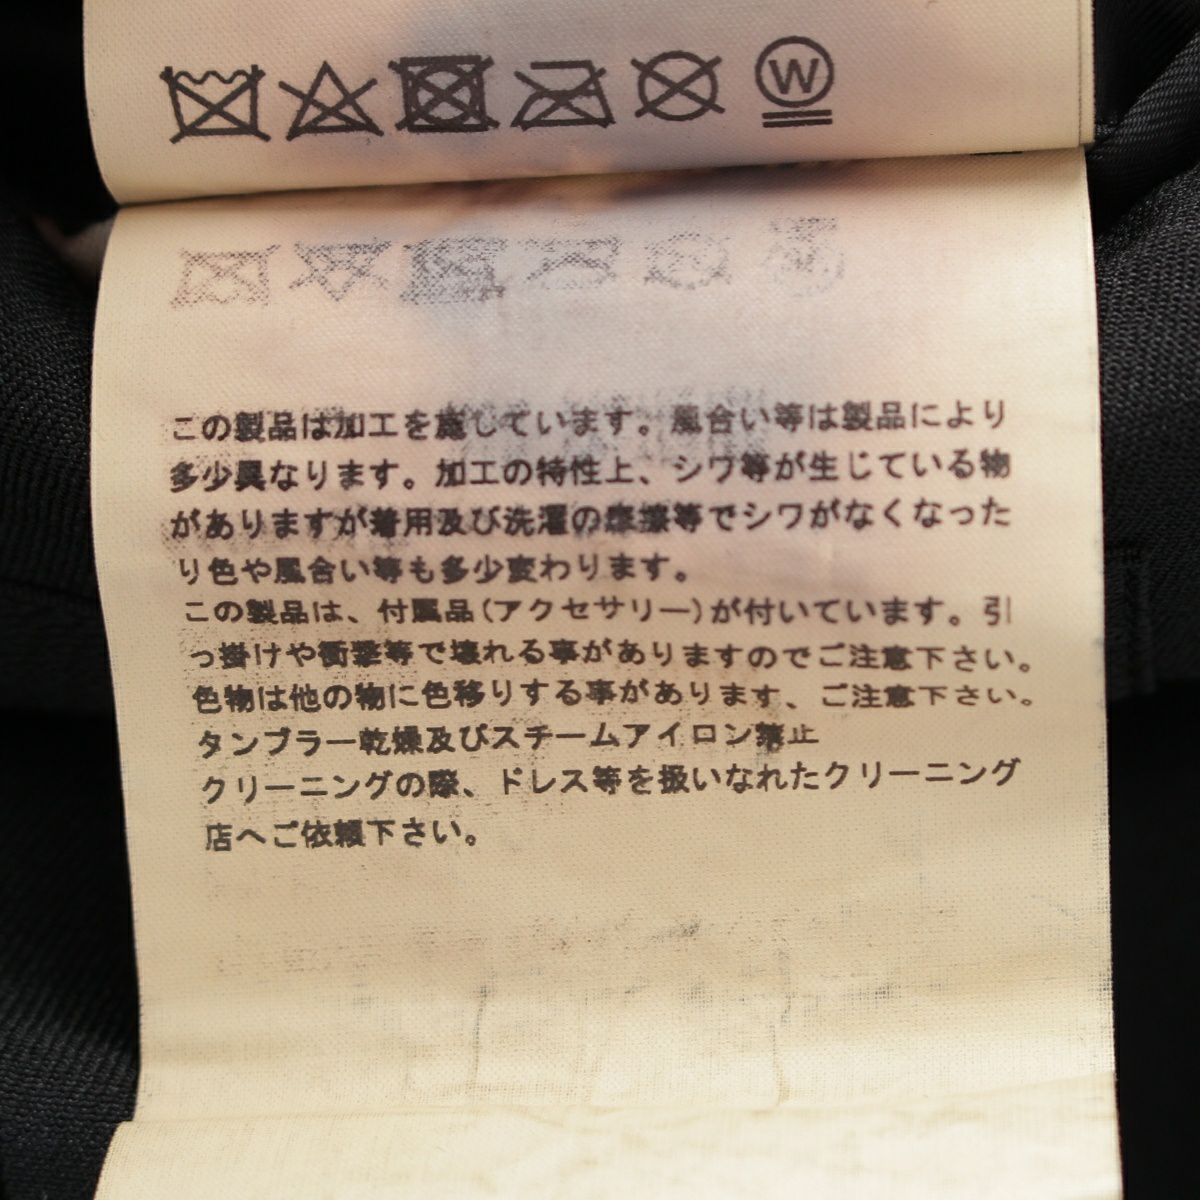 W
この製品は加工を施しています。風合い等は製品により
多少異なります。加工の特性上、シワ等が生じている物
がありますが着用及び洗濯の摩擦等でシワがなくなった
り色や風合い等も多少変わります。
この製品は、付属品(アクセサリー)が付いています。引
っ掛けや衝撃等で壊れる事がありますのでご注意下さい。
色物は他の物に色移りする事があります、ご注意下さい。
タンブラー乾燥及びスチームアイロン禁止
クリーニングの際、ドレス等を扱いなれたクリーニング
店へご依頼下さい。